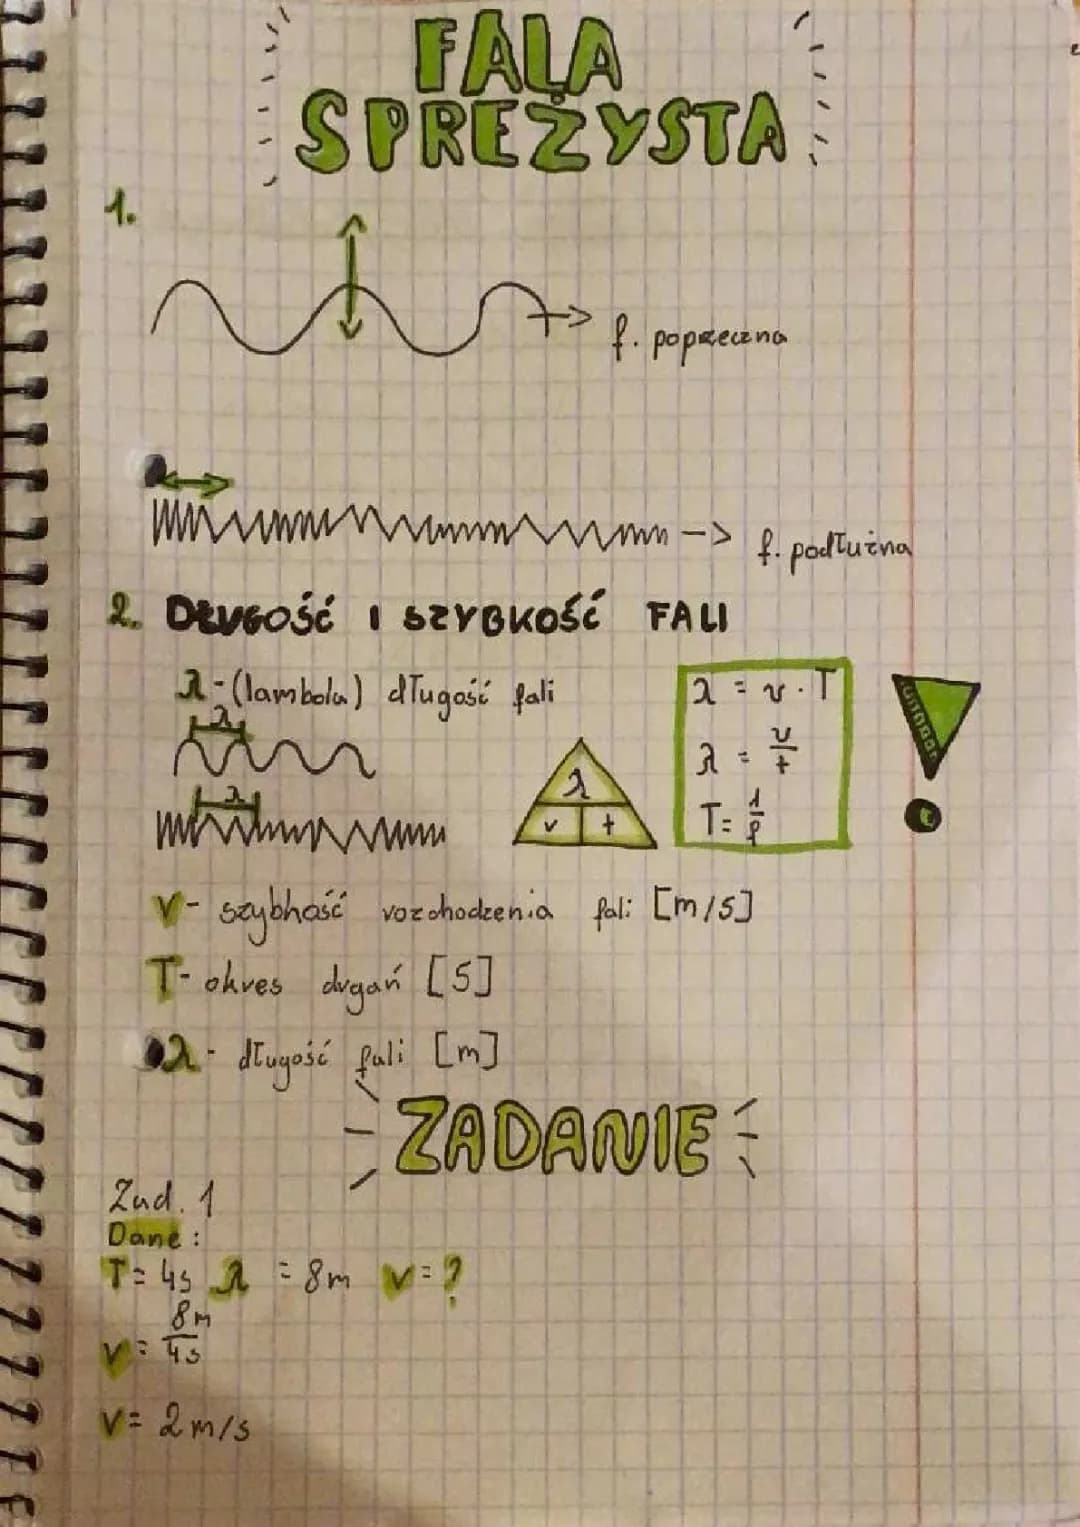 FALA
SPRĘŻYSTA
1.
f. poprzeczna
f. podłużna
2. DŁUGOŚĆ I SZYBKOŚĆ FALI
λ - (lambda) długość fali
λ
λ
λ
v t
λ = v · T
λ = v/t
T = 1/f
v - szybkość rozchodzenia fali [m/s]
T - okres drgań [s]
λ - długość fali [m]
ZADANIE
Zad. 1
Dane:
T = 4s λ = 8m v = ?
v = 8m/4s
v = 2 m/s